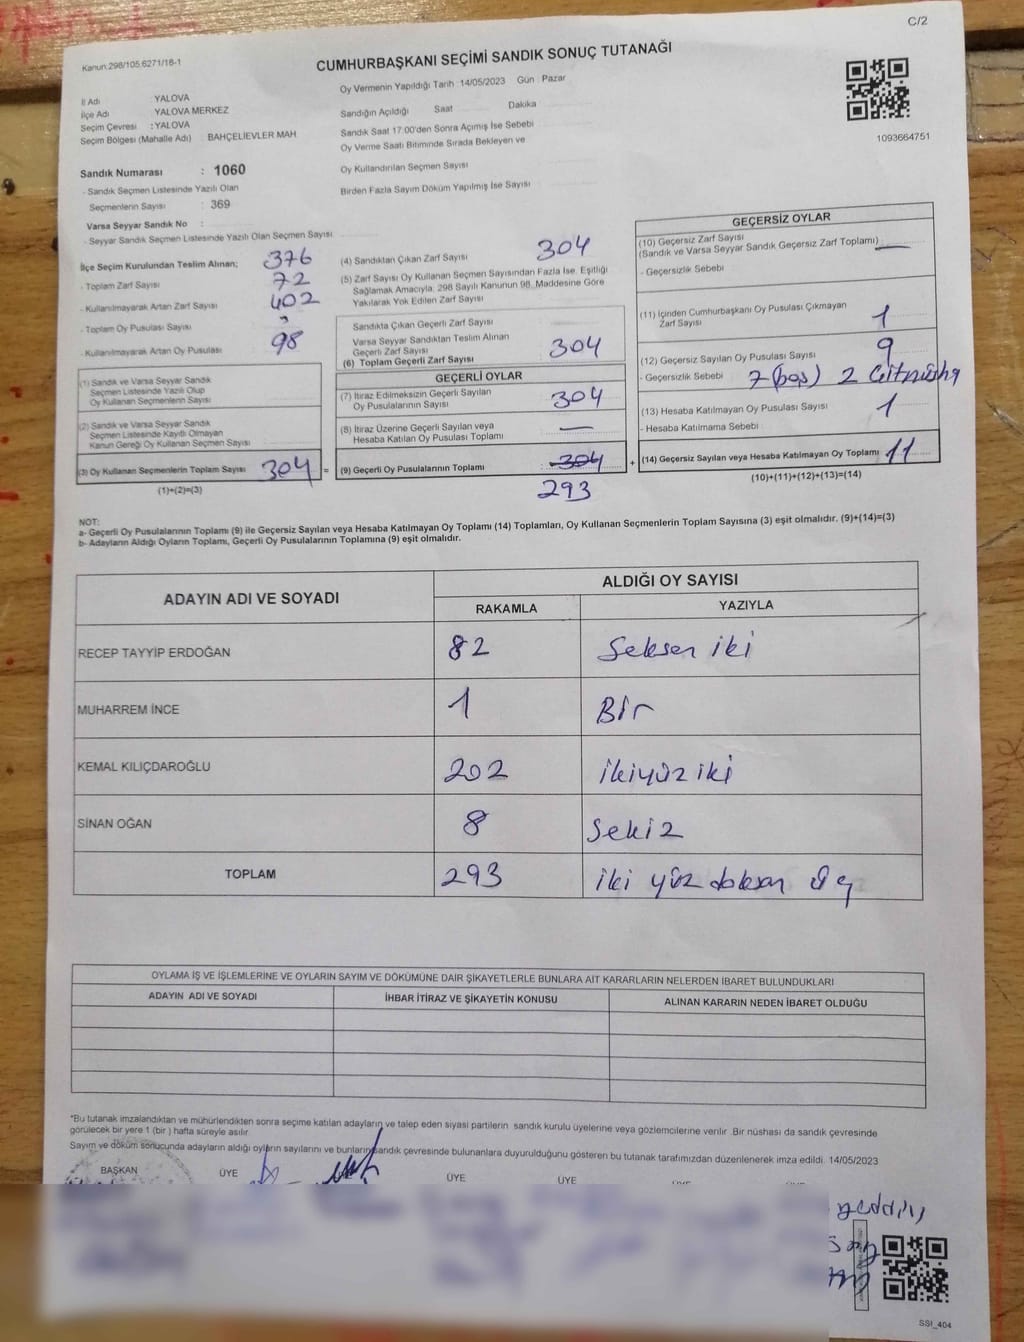 C/2
Kanun.298/105.6271/18-1
CUMHURBAŞKANI SEÇİMİ SANDIK SONUÇ TUTANAĞI
1093664751
İl Adı YALOVA
İlçe Adı YALOVA MERKEZ
Seçim Çevresi : YALOVA
Seçim Bölgesi (Mahalle Adı) BAHÇELİEVLER MAH
Sandık Numarası : 1060
- Sandık Seçmen Listesinde Yazılı Olan
Seçmenlerin Sayısı : 369
Varsa Seyyar Sandık No :
- Seyyar Sandık Seçmen Listesinde Yazılı Olan Seçmen Sayısı
Oy Vermenin Yapıldığı Tarih :14/05/2023 Gün : Pazar
Sandığın Açıldığı Saat Dakika
Sandık Saat 17:00'den Sonra Açımış İse Sebebi
Oy Verme Saati Bitiminde Sırada Bekleyen ve
Oy Kullandırılan Seçmen Sayısı
Birden Fazla Sayım Döküm Yapılmış İse Sayısı
İlçe Seçim Kurulundan Teslim Alınan; 376
- Toplam Zarf Sayısı 72
- Kullanılmayarak Artan Zarf Sayısı 402
- Toplam Oy Pusulası Sayısı
- Kullanılmayarak Artan Oy Pusulası 98
(1) Sandık ve Varsa Seyyar Sandık
Seçmen Listesinde Yazılı Olup
Oy Kullanan Seçmenlerin Sayısı
(2) Sandık ve Varsa Seyyar Sandık
Seçmen Listesinde Kayıtlı Olmayan
Kanun Gereği Oy Kullanan Seçmen Sayısı
(3) Oy Kullanan Seçmenlerin Toplam Sayısı 304 =
(1)+(2)=(3)
(4) Sandıktan Çıkan Zarf Sayısı 304
(5) Zarf Sayısı Oy Kullanan Seçmen Sayısından Fazla İse, Eşitliği
Sağlamak Amacıyla, 298 Sayılı Kanunun 98. Maddesine Göre
Yakılarak Yok Edilen Zarf Sayısı
Sandıkta Çıkan Geçerli Zarf Sayısı
Varsa Seyyar Sandıktan Teslim Alınan
Geçerli Zarf Sayısı
(6) Toplam Geçerli Zarf Sayısı 304
GEÇERLİ OYLAR
(7) İtiraz Edilmeksizin Geçerli Sayılan
Oy Pusulalarının Sayısı 304
(8) İtiraz Üzerine Geçerli Sayılan veya
Hesaba Katılan Oy Pusulası Toplamı —
(9) Geçerli Oy Pusulalarının Toplamı 304 +
293
GEÇERSİZ OYLAR
(10) Geçersiz Zarf Sayısı
(Sandık ve Varsa Seyyar Sandık Geçersiz Zarf Toplamı) —
- Geçersizlik Sebebi
(11) İçinden Cumhurbaşkanı Oy Pusulası Çıkmayan
Zarf Sayısı 1
(12) Geçersiz Sayılan Oy Pusulası Sayısı 9
- Geçersizlik Sebebi 7 (boş) 2
(13) Hesaba Katılmayan Oy Pusulası Sayısı 1
- Hesaba Katılmama Sebebi
(14) Geçersiz Sayılan veya Hesaba Katılmayan Oy Toplamı 11
(10)+(11)+(12)+(13)=(14)
NOT:
a- Geçerli Oy Pusulalarının Toplamı (9) ile Geçersiz Sayılan veya Hesaba Katılmayan Oy Toplamı (14) Toplamları, Oy Kullanan Seçmenlerin Toplam Sayısına (3) eşit olmalıdır. (9)+(14)=(3)
b- Adayların Aldığı Oyların Toplamı, Geçerli Oy Pusulalarının Toplamına (9) eşit olmalıdır.
ADAYIN ADI VE SOYADI ALDIĞI OY SAYISI
RAKAMLA YAZIYLA
RECEP TAYYİP ERDOĞAN 82 Seksen iki
MUHARREM İNCE 1 Bir
KEMAL KILIÇDAROĞLU 202 ikiyüz iki
SİNAN OĞAN 8 Sekiz
TOPLAM 293 iki yüz doksan üç
OYLAMA İŞ VE İŞLEMLERİNE VE OYLARIN SAYIM VE DÖKÜMÜNE DAİR ŞİKAYETLERLE BUNLARA AİT KARARLARIN NELERDEN İBARET BULUNDUKLARI
ADAYIN ADI VE SOYADI İHBAR İTİRAZ VE ŞİKAYETİN KONUSU ALINAN KARARIN NEDEN İBARET OLDUĞU
*Bu tutanak imzalandıktan ve mühürlendikten sonra seçime katılan adayların ve talep eden siyasi partilerin sandık kurulu üyelerine veya gözlemcilerine verilir. Bir nüshası da sandık çevresinde
görülecek bir yere 1 (bir ) hafta süreyle asılır.
Sayım ve döküm sonucunda adayların aldığı oyların sayılarını ve bunların sandık çevresinde bulunanlara duyurulduğunu gösteren bu tutanak tarafımızdan düzenlenerek imza edildi. 14/05/2023
BAŞKAN ÜYE ÜYE ÜYE
SSI_404